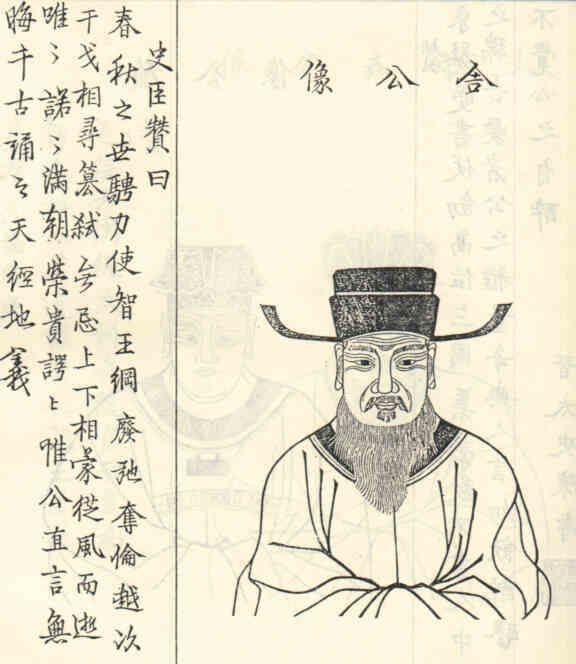 舍公像
史臣贊曰
春秋之世騁力使智王綱廢弛奪倫越次
干戈相尋篡弑无忌上下相蒙從風而逝
唯〻諾〻滿朝榮貴諤〻惟公直言無
晦千古誦之天經地義